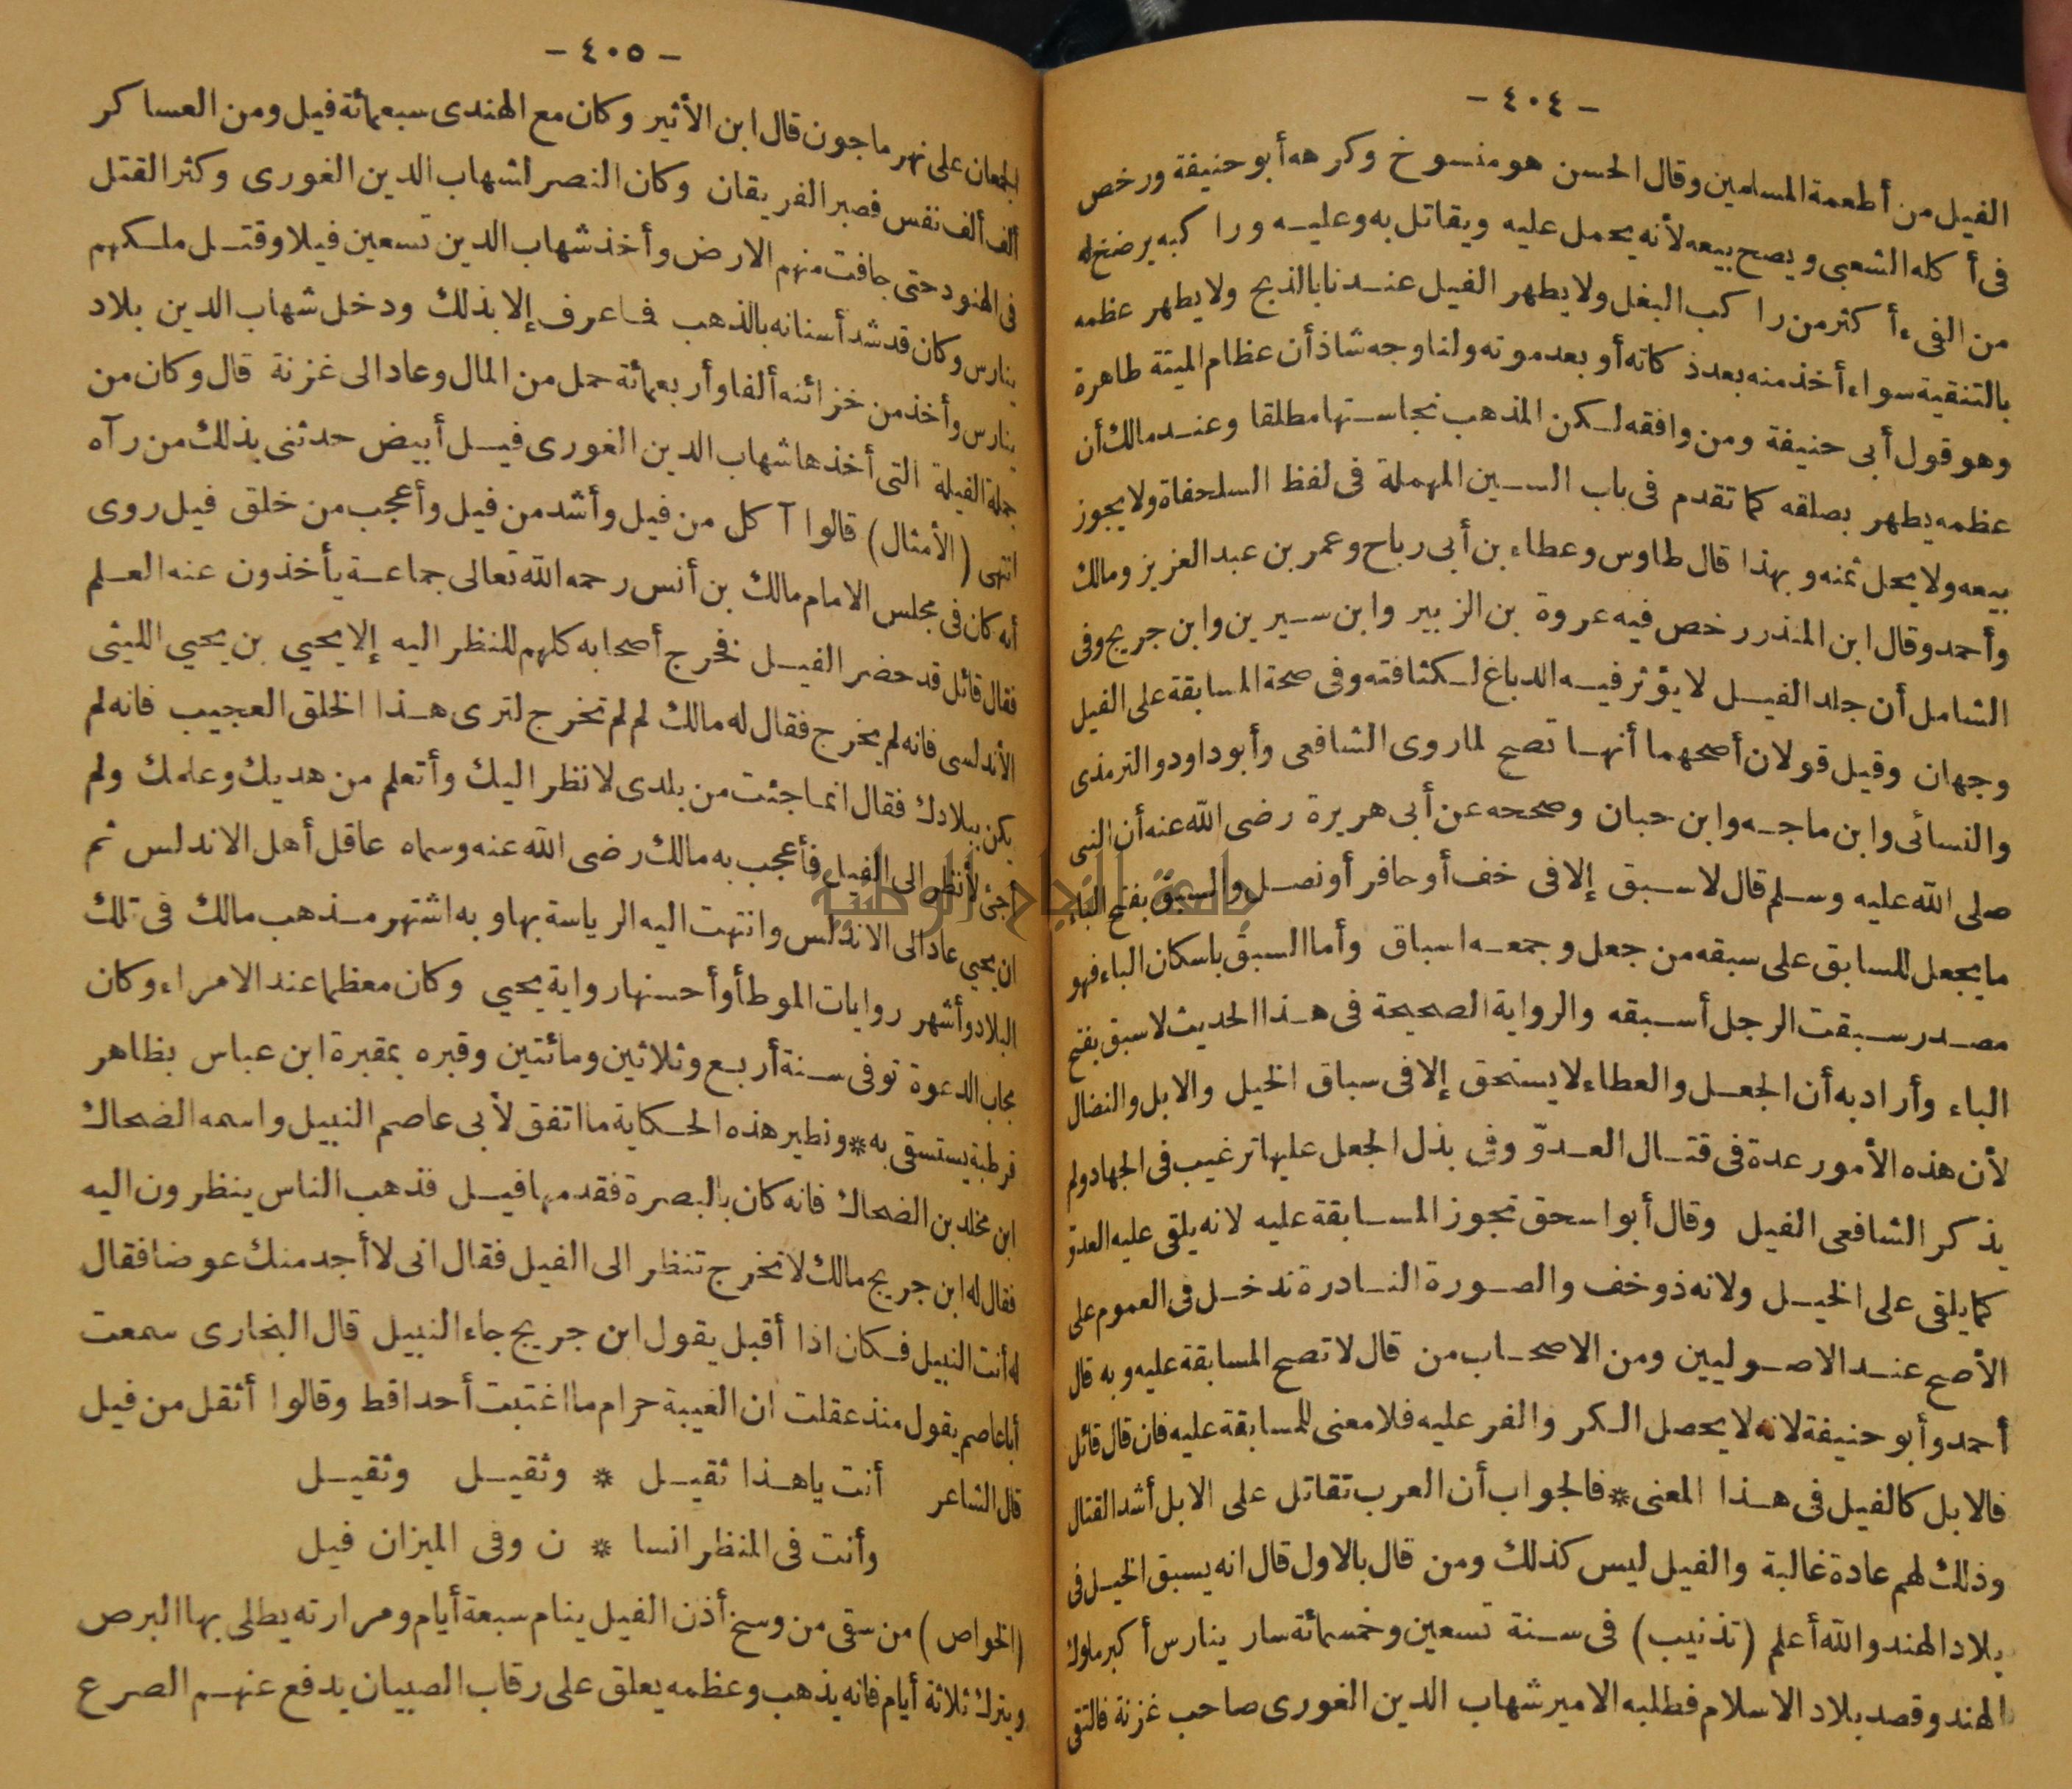 - ٤٠٤ -
الفيل من أطعمة المسلمين وقال الحسن هو منسوخ وكرهه أبو حنيفة ورخص
فى أكله الشعبى ويصح بيعه لأنه يحمل عليه ويقاتل به وعليه وراكبه يرضخ له
من الفىء أكثر من راكب البغل ولا يطهر الفيل عندنا بالذبح ولا يطهر عظمه
بالتنقية سواء أخذ منه بعد ذكاته أو بعد موته ولنا وجه شاذ أن عظام الميتة طاهرة
وهو قول أبى حنيفة ومن وافقه لكن المذهب نجاستها مطلقا وعند مالك أن
عظمه يطهر بصلقه كما تقدم فى باب السين المهملة فى لفظ السلحفاة ولا يجوز
بيعه ولا يحل ثمنه وبهذا قال طاوس وعطاء بن أبى رباح وعمر بن عبد العزيز ومالك
وأحمد وقال ابن المنذر رخص فيه عروة بن الزبير وابن سيرين وابن جريج وفى
الشامل أن جلد الفيل لا يؤثر فيه الدباغ لكثافته وفى صحة المسابقة على الفيل
وجهان وقيل قولان أصحهما أنها تصح لما روى الشافعى وأبو داود والترمذى
والنسائى وابن ماجه وابن حبان وصححه عن أبى هريرة رضى الله عنه أن النبى
صلى الله عليه وسلم قال لا سبق إلا فى خف أو حافر أو نصل والسبق بفتح الباء
ما يجعل للسابق على سبقه من جعل وجمعه اسباق وأما السبق باسكان الباء فهو
مصدر سبقت الرجل أسبقه والرواية الصحيحة فى هذا الحديث لا سبق بفتح
الباء وأراد به أن الجعل والعطاء لا يستحق إلا فى سباق الخيل والابل والنضال
لأن هذه الأمور عدة فى قتال العدوّ وفى بذل الجعل عليها ترغيب فى الجهاد ولم
يذكر الشافعى الفيل وقال أبو اسحق تجوز المسابقة عليه لانه يلقى عليه العدوّ
كما يلقى على الخيل ولانه ذو خف والصورة النادرة تدخل فى العموم على
الأصح عند الاصوليين ومن الاصحاب من قال لا تصح المسابقة عليه وبه قال
أحمد وأبو حنيفة لانه لا يحصل الكر والفر عليه فلا معنى للمسابقة عليه فان قال قائل
فالابل كالفيل فى هذا المعنى * فالجواب أن العرب تقاتل على الابل أشد القتال
وذلك لهم عادة غالبة والفيل ليس كذلك ومن قال بالاول قال انه يسبق الخيل فى
بلاد الهند والله أعلم (تذنيب) فى سنة تسعين وخمسمائة سار ينارس أكبر ملوك
الهند وقصد بلاد الاسلام فطلبه الامير شهاب الدين الغورى صاحب غزنة فالتقى
- ٤٠٥ -
الجمعان على نهر ماجون قال ابن الأثير وكان مع الهندى سبعمائة فيل ومن العساكر
ألف ألف نفس فصبر الفريقان وكان النصر لشهاب الدين الغورى وكثر القتل
فى الهنود حتى جافت منهم الارض وأخذ شهاب الدين تسعين فيلا وقتل ملكهم
ينارس وكان قد شد أسنانه بالذهب فما عرف إلا بذلك ودخل شهاب الدين بلاد
ينارس وأخذ من خزائنه ألفا وأربعمائة حمل من المال وعاد الى غزنة قال وكان من
جملة الفيلة التى أخذها شهاب الدين الغورى فيل أبيض حدثنى بذلك من رآه
انتهى (الأمثال) قالوا آكل من فيل وأشد من فيل وأعجب من خلق فيل روى
أنه كان فى مجلس الامام مالك بن أنس رحمه الله تعالى جماعة يأخذون عنه العلم
فقال قائل قد حضر الفيل فخرج أصحابه كلهم للنظر اليه إلا يحيى بن يحيى الليثى
الأندلسى فانه لم يخرج فقال له مالك لم لم تخرج لترى هذا الخلق العجيب فانه لم
يكن ببلادك فقال انما جئت من بلدى لانظر اليك وأتعلم من هديك وعلمك ولم
أجئ لأنظر الى الفيل فأعجب به مالك رضى الله عنه وسماه عاقل أهل الاندلس ثم
ان يحيى عاد الى الاندلس وانتهت اليه الرياسة بها وبه اشتهر مذهب مالك فى تلك
البلاد وأشهر روايات الموطأ وأحسنها رواية يحيى وكان معظما عند الامراء وكان
مجاب الدعوة توفى سنة أربع وثلاثين ومائتين وقبره بمقبرة ابن عباس بظاهر
قرطبة يستسقى به * ونظير هذه الحكاية ما اتفق لأبى عاصم النبيل واسمه الضحاك
ابن مخلد بن الضحاك فانه كان بالبصرة فقدمها فيل فذهب الناس ينظرون اليه
فقال له ابن جريج مالك لا تخرج تنظر الى الفيل فقال انى لا أجد منك عوضا فقال
له أنت النبيل فكان اذا أقبل يقول ابن جريج جاء النبيل قال البخارى سمعت
أبا عاصم يقول منذ عقلت ان الغيبة حرام ما اغتبت أحدا قط وقالوا أثقل من فيل
قال الشاعر أنت يا هذا ثقيل * وثقيل وثقيل
وأنت فى المنظر انسا * ن وفى الميزان فيل
(الخواص) من سقى من وسخ أذن الفيل ينام سبعة أيام ومرارته يطلى بها البرص
ويترك ثلاثة أيام فانه يذهب وعظمه يعلق على رقاب الصبيان يدفع عنهم الصرع
جامعة النجاح الوطنية